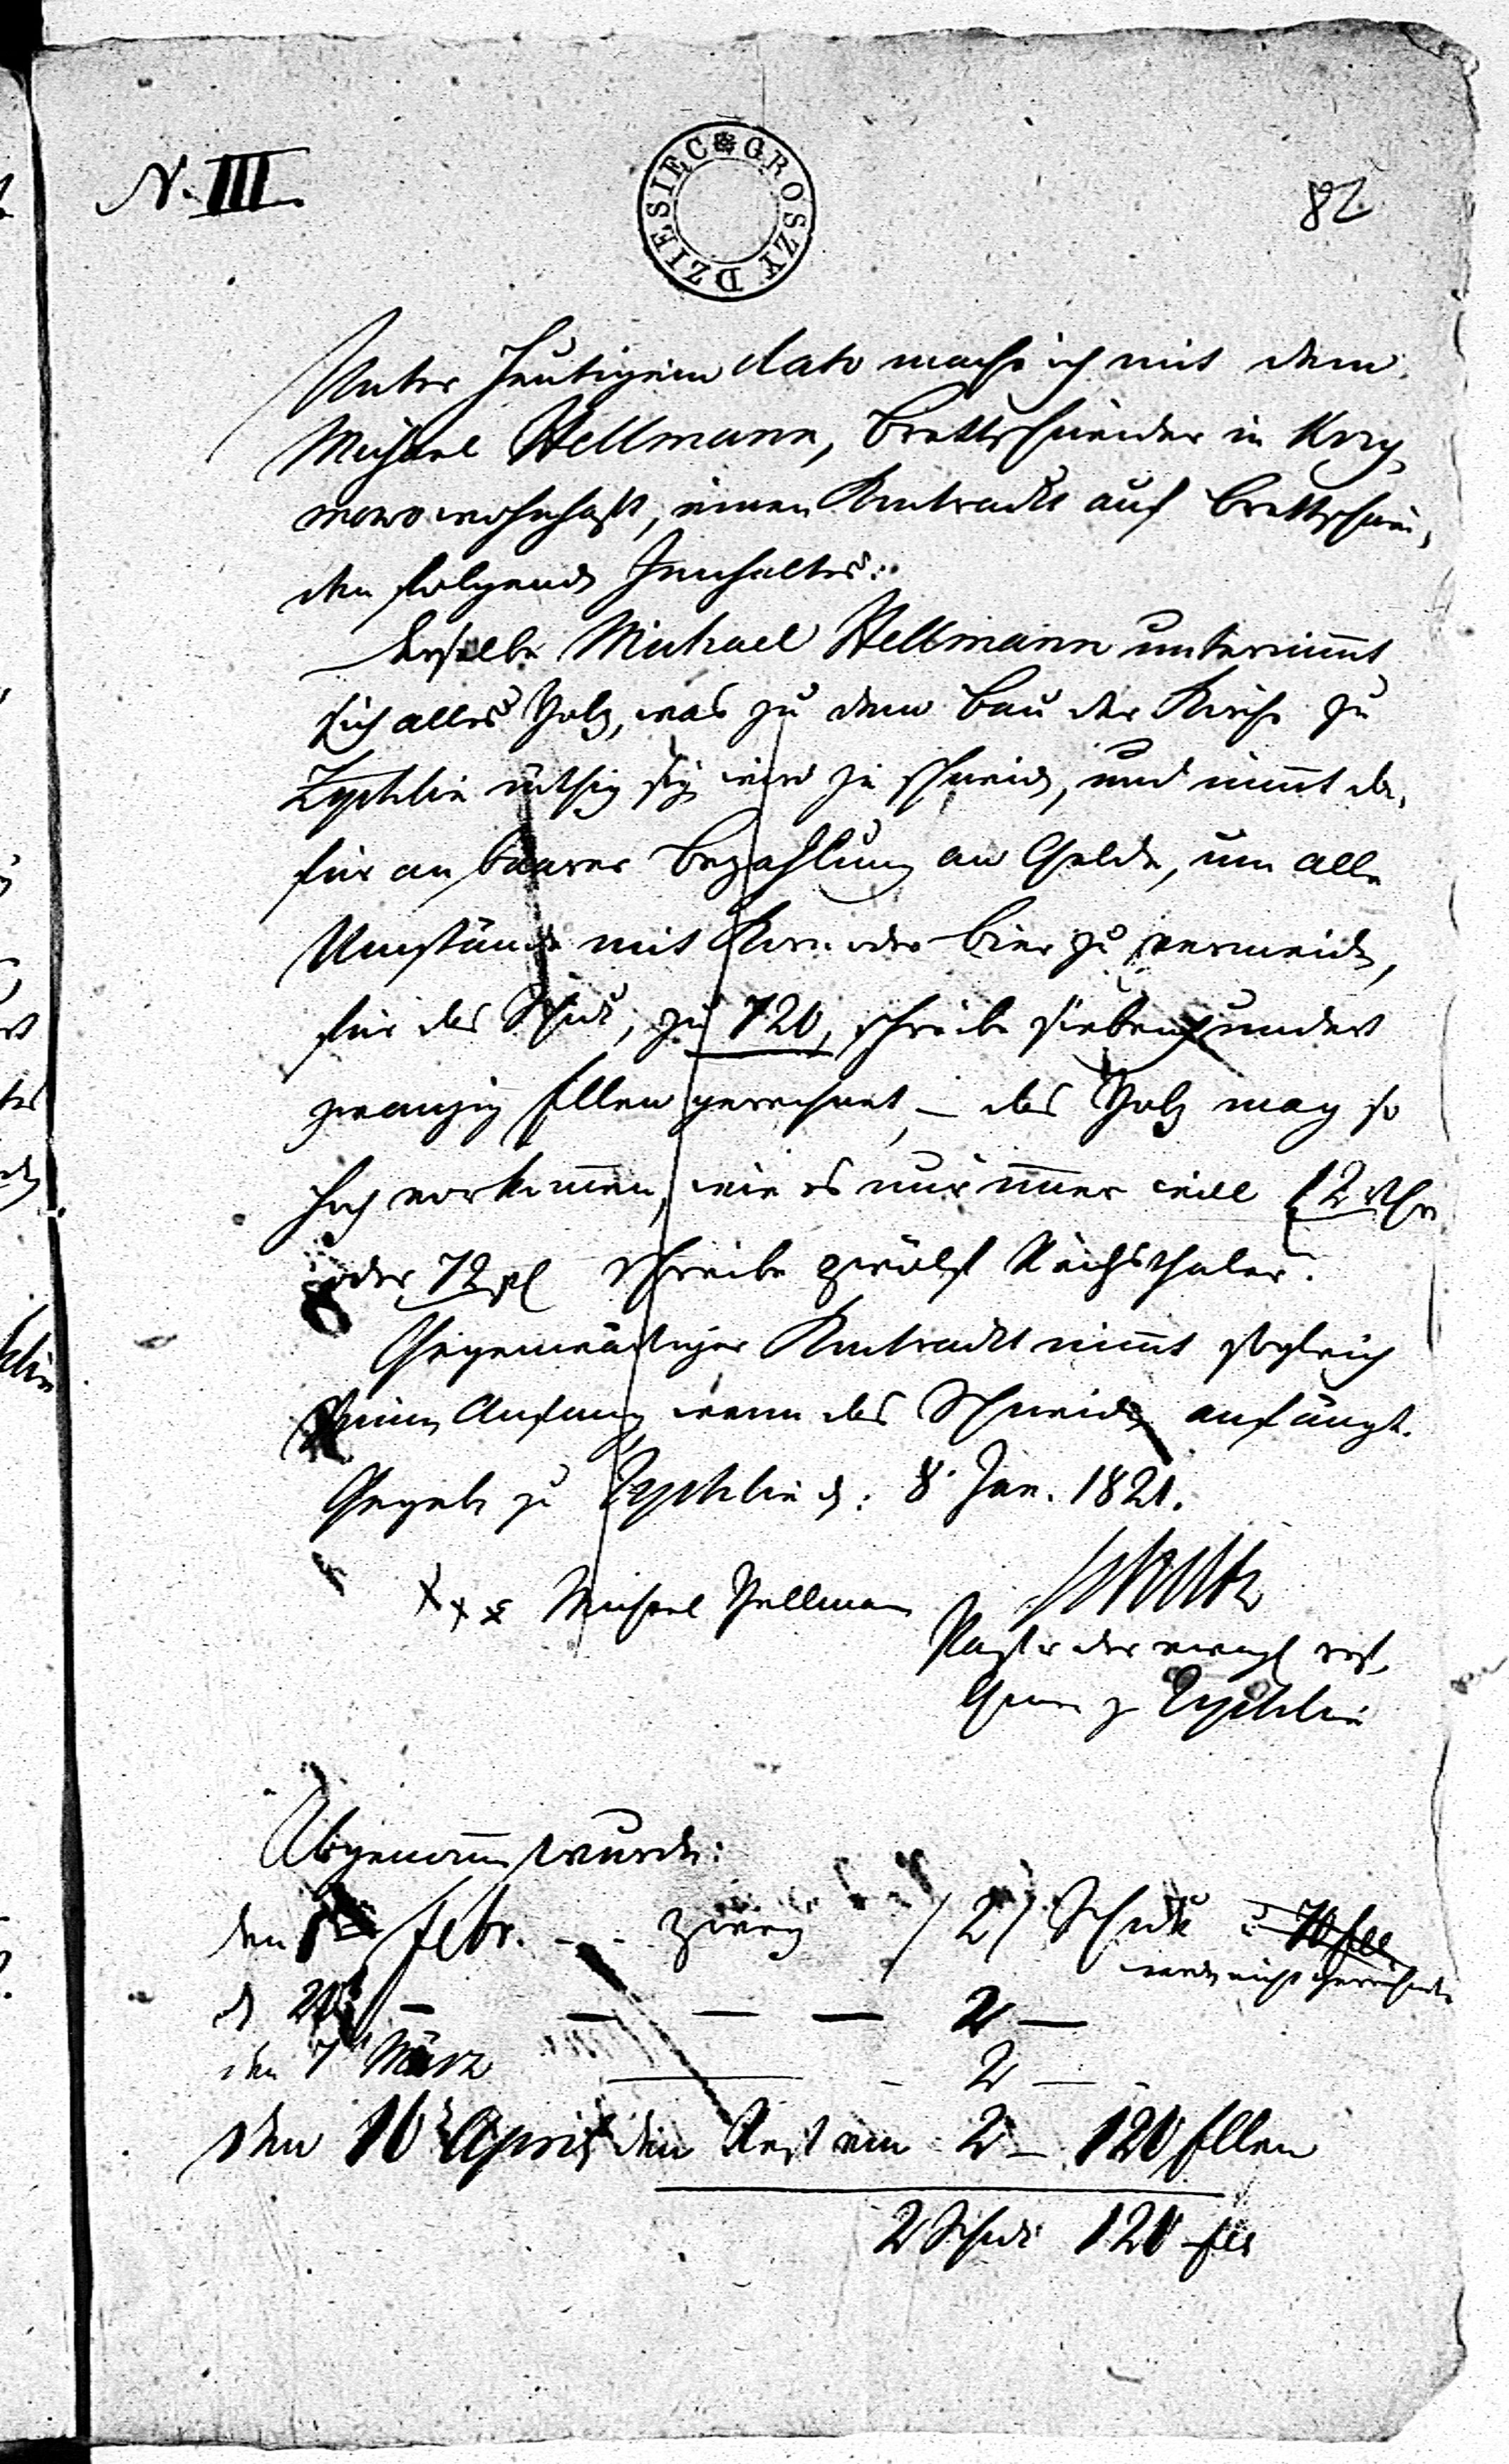 N. III.
DZIESIEC GROSZY
82
Unter heutigem dato mache ich mit dem
Michael Hellmann, Brettschneider in Krzy,
mowo wohnhaft, einen Kontrackt auf Brettschnei,
den folgends Innhaltes:
Derselbe Michael Hellmann unternimmt
sich alles Holz, was zu dem Bau der Kirche zu
Zychlin nöthig sein wird zu schneiden, und nimmt da,
für an baarer Bezahlung an Gelde, um alle
Umstände mit Korn oder Bier zu vermeiden,
für das Schock, zu 720, schreibe siebenhundert
zwanzig Ellen gerechnet, – das Holz mag so
hoch vorkommen, wie es nur immer will 12 rthr
oder 72 fl schreibe zwölf Reichsthaler.
Gegenwärtiger Kontrackt nimmt sogleich
seinen Anfang, wann das Schneiden anfängt.
Gegeben zu Zychlin d: 8. Jan. 1821.
xxx Michael Hellmann
Pastor der evangl ref.
Gem. z Zychlin
Abgenommen wurde:
den Febr. – – zwey / 2 / Schock
werden nicht gerechnet
d – – – – 2 –
den 7 März – 2 –
den 16 April den Rest von 2 – 120 Ellen
2 Schock 120 Ell